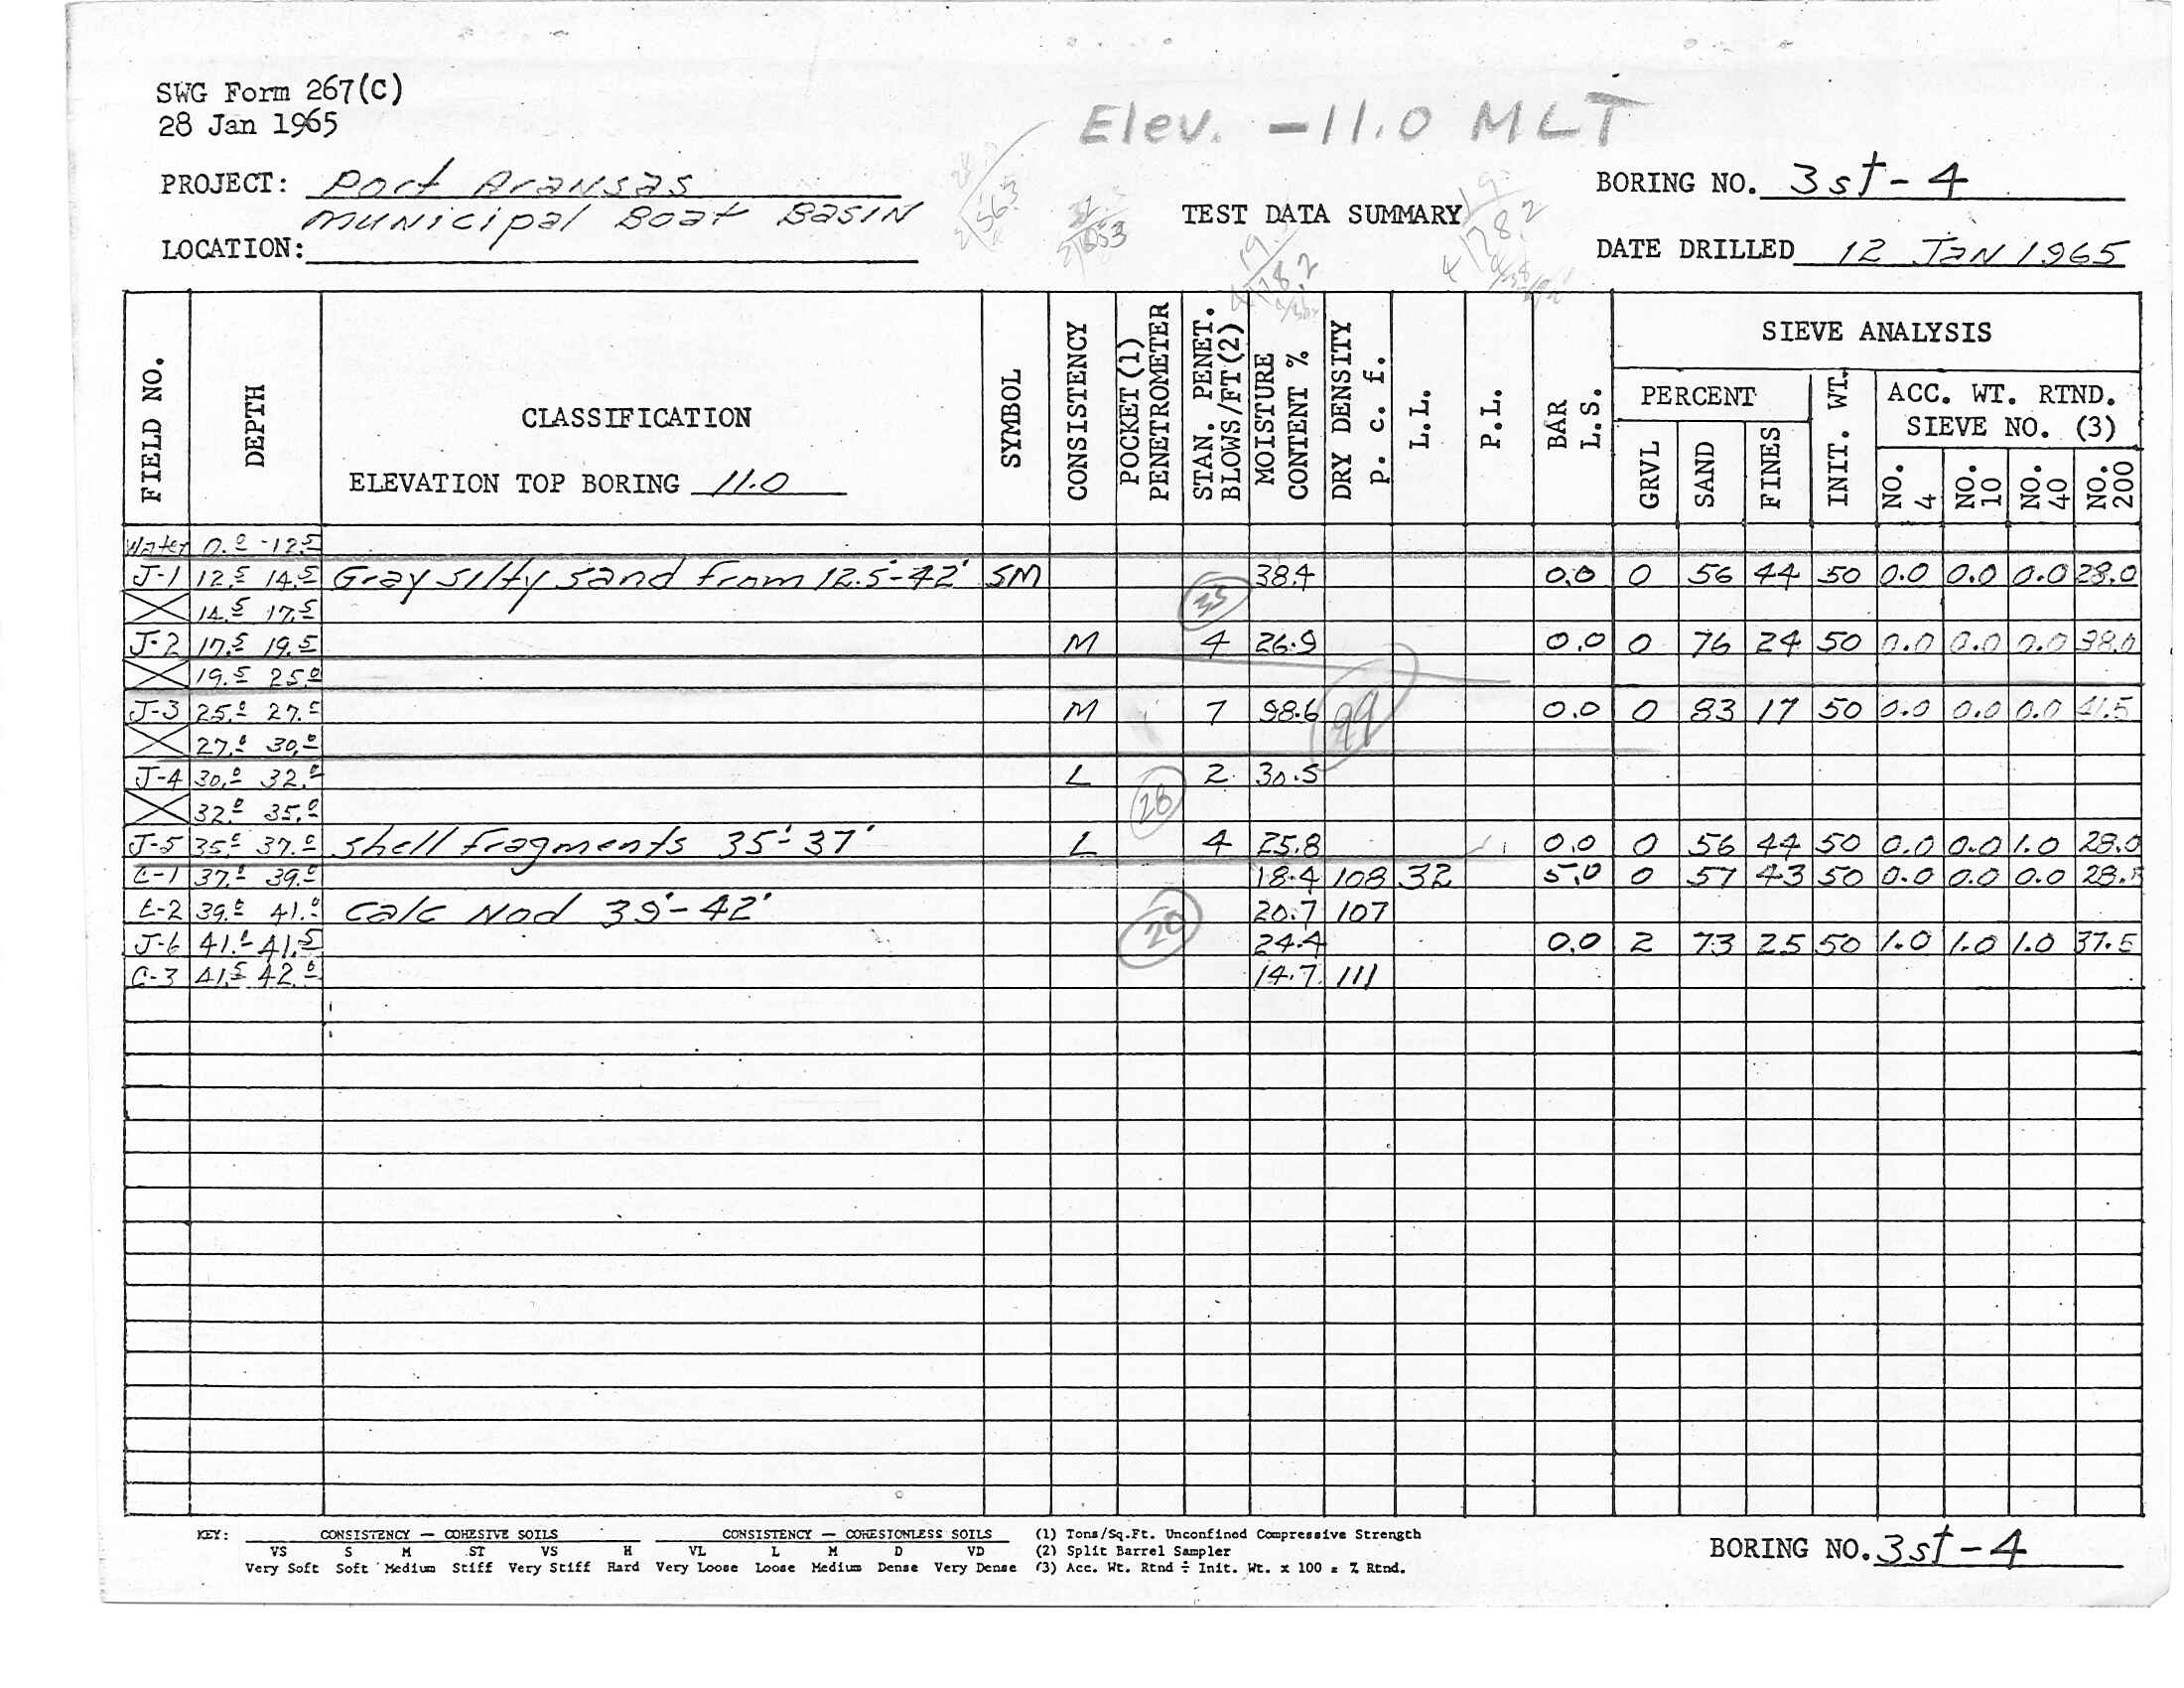 SWG Form 267(C)
28 Jan 1965
Elev. -11.0 MLT
PROJECT: Port Aransas
Municipal Boat Basin
LOCATION:
TEST DATA SUMMARY
BORING NO. 3st-4
DATE DRILLED 12 Jan 1965
FIELD NO. DEPTH CLASSIFICATION SYMBOL CONSISTENCY POCKET (1) PENETROMETER STAN. PENET. BLOWS/FT (2) MOISTURE CONTENT % DRY DENSITY p. c. f. L.L. P.L. BAR L.S. SIEVE ANALYSIS
PERCENT INIT. WT. ACC. WT. RTND. SIEVE NO. (3)
GRVL SAND FINES NO. 4 NO. 10 NO. 40 NO. 200
ELEVATION TOP BORING 11.0
Water 0.0 -12.5
J-1 12.5 14.5 Gray silty sand from 12.5'-42' SM 38.4 0.0 0 56 44 50 0.0 0.0 0.0 28.0
14.5 17.5 35
J-2 17.5 19.5 M 4 26.9 0.0 0 76 24 50 0.0 0.0 0.0 38.0
19.5 25.0
J-3 25.0 27.0 M 7 98.6 29 0.0 0 83 17 50 0.0 0.0 0.0 41.5
27.0 30.0
J-4 30.0 32.0 L 2 30.5
32.0 35.0 28
J-5 35.0 37.0 shell fragments 35'-37' L 4 25.8 0.0 0 56 44 50 0.0 0.0 1.0 28.0
C-1 37.0 39.0 18.4 108 32 5.0 0 57 43 50 0.0 0.0 0.0
C-2 39.0 41.0 Calc Nod 39'-42' 20.7 107
J-6 41.0 41.5 20 24.4 0.0 2 73 25 50 1.0 1.0 1.0 37.5
C-3 41.5 42.0 14.7 111
KEY: CONSISTENCY — COHESIVE SOILS CONSISTENCY — COHESIONLESS SOILS (1) Tons/Sq.Ft. Unconfined Compressive Strength
VS S M ST VS H VL L M D VD (2) Split Barrel Sampler
Very Soft Soft Medium Stiff Very Stiff Hard Very Loose Loose Medium Dense Very Dense (3) Acc. Wt. Rtnd ÷ Init. Wt. x 100 = % Rtnd.
BORING NO. 3st-4